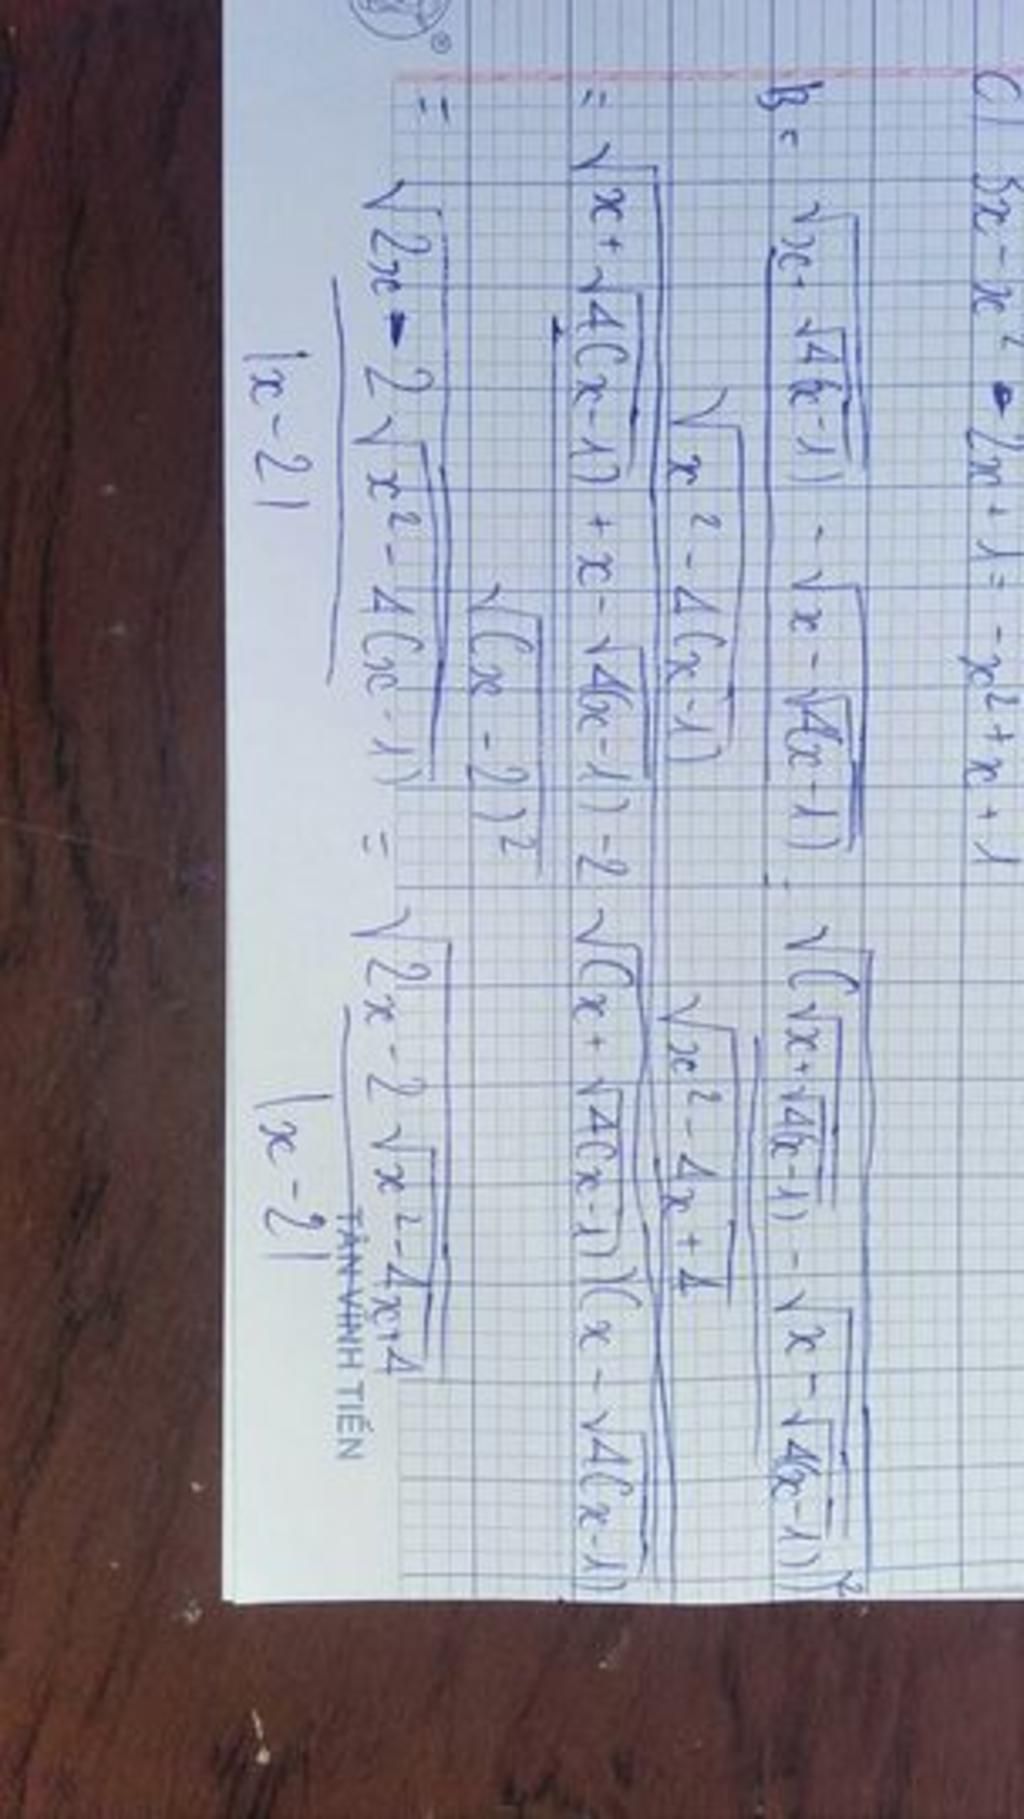 C) 3x - x² - 2x + 1 = -x² + x + 1
B = √(x + √(4(x-1))) - √(x - √(4(x-1))) = √((√(x + √(4(x-1))) - √(x - √(4(x-1))))²)
√(x² - 4(x-1)) √(x² - 4x + 4)
= √(x + √(4(x-1)) + x - √(4(x-1)) - 2√((x + √(4(x-1)))(x - √(4(x-1)))))
√((x - 2)²)
= √(2x - 2√(x² - 4(x-1))) = √(2x - 2√(x² - 4x + 4))
|x - 2| |x - 2|
TÂN VĨNH TIẾN
®